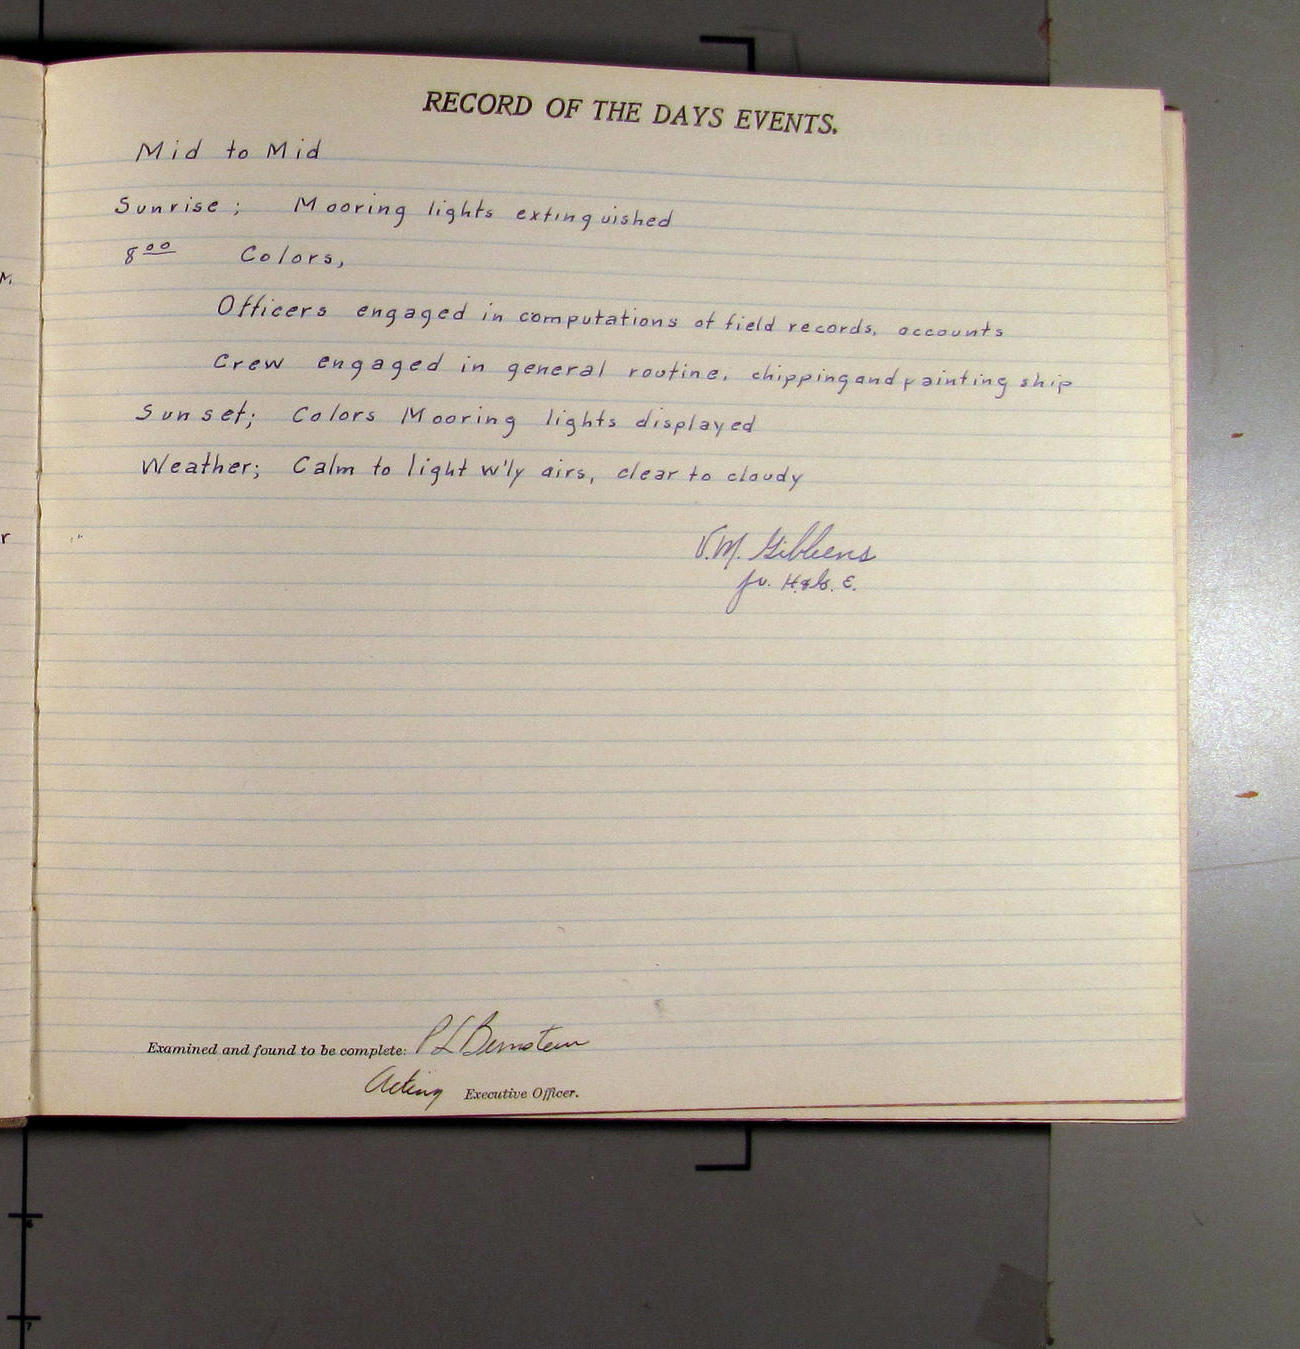 RECORD OF THE DAYS EVENTS.
Mid to Mid
Sunrise; Mooring lights extinguished
8 00 Colors,
M.
Officers engaged in computations of field records, accounts
Crew engaged in general routine, chipping and painting ship
Sunset; Colors Mooring lights displayed
Weather; Calm to light w'ly airs, clear to cloudy
r
V.M. Gibbens
Jr. H.&G. E.
Examined and found to be complete: P L Bernstein
Acting Executive Officer.
6
7